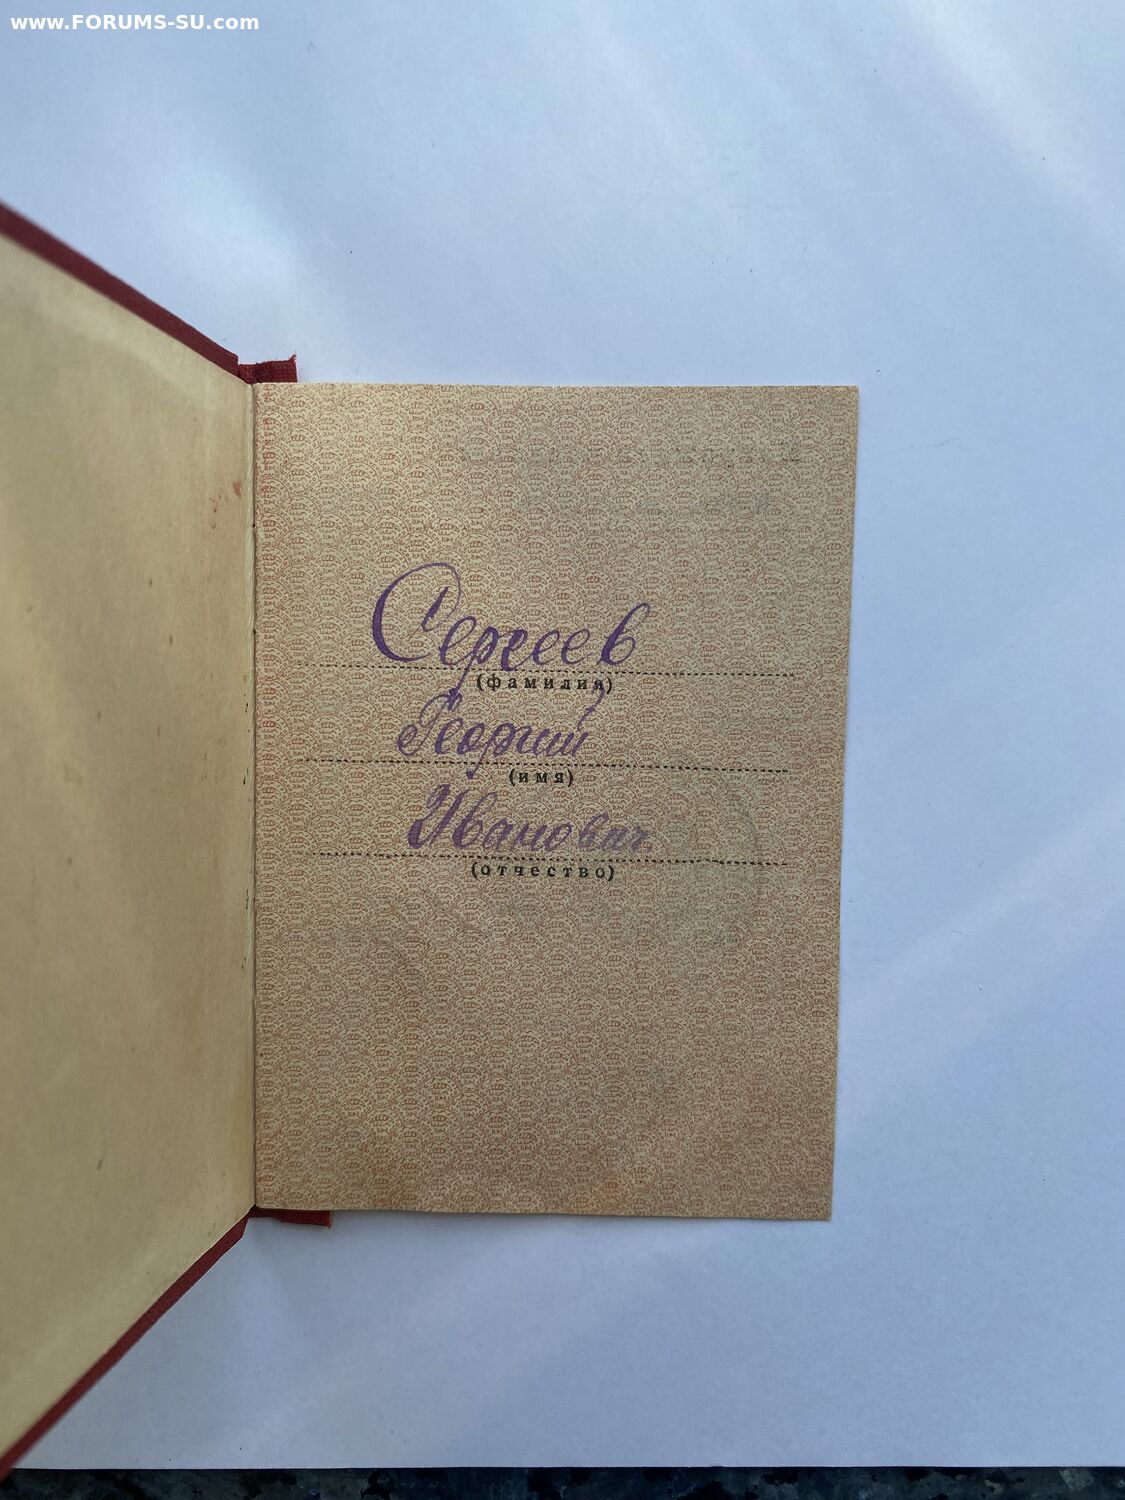 www.FORUMS-SU.com
Сергеев
(фамилия)
Георгий
(имя)
Иванович
(отчество)